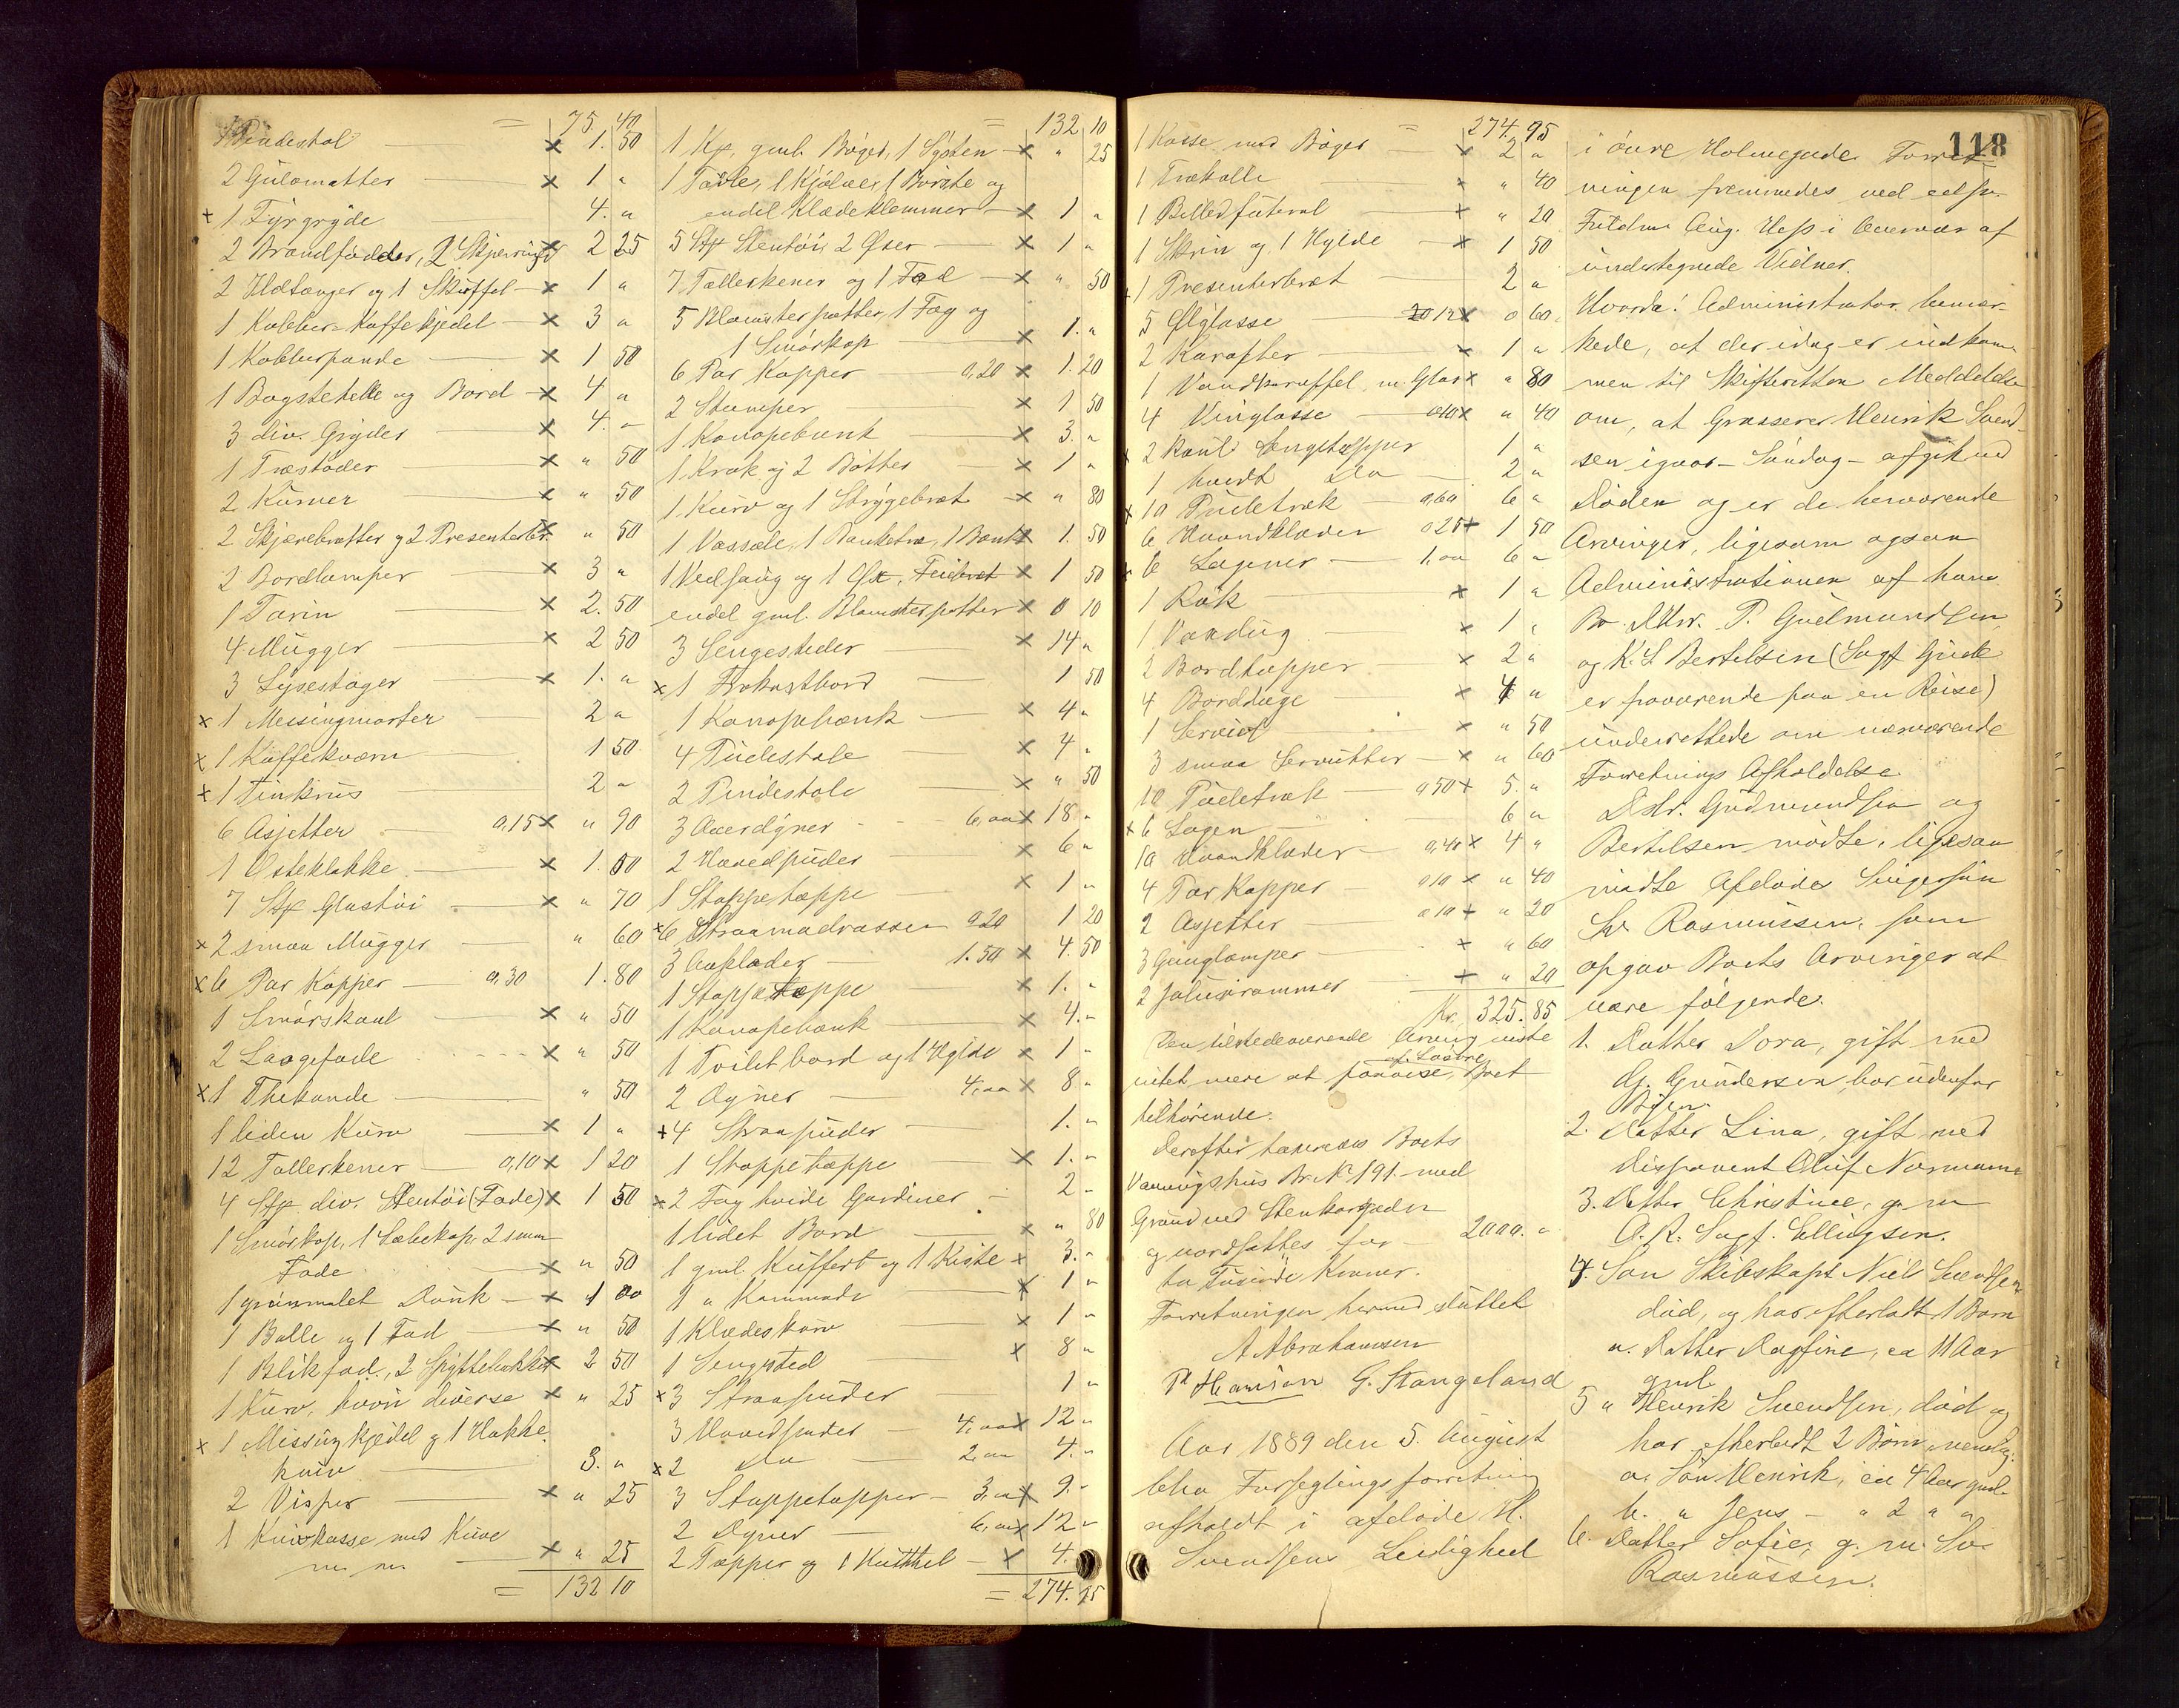 = 75. 40
1 Pindestol x 1. 50
2 Gulvmatter x 1 "
+ 1 Fyrgryde 4. "
2 Brandfødder, 2 Skjeeringe x 2 25
2 Ildtænger og 1 Skuffel x 1 "
1 Kobber-Kaffekjedel x 3 "
1 Kobberpande x 1 50
1 Bogstetelle og Bord x 4 "
3 div. Gryder x 4. "
1 Træstøder x " 50
2 Kurver x " 50
2 Skjærebrætter og 2 Presenterbr. x " 50
2 Bordlamper x 3 "
1 Tarin x 2. 50
4 Mugger x 2 50
3 Lysestager x 1. "
x 1 Messingmorter 2 "
x 1 Kaffekværn 1 50
x 1 Tinkrus 2 "
6 Asjetter 0,15 x " 90
1 Osteklokke x 1. 00
7 Stk Glastøi x " 70
x 2 smaa Mugger " 60
x 6 Par Kopper 0,30 1. 80
1 Smørskaal x " 50
2 Laagefade x " 50
x 1 Thekande " 50
1 liden Kurv x 1 "
12 Tallerkener 0,10 x 1 20
4 Stk div. Stentøi (Fade) x 1 50
1 Smørkop, 1 Sæbekop, 2 smaa
Fade x " 50
1 grønmalet Dunk x 1 00
1 Balle og 1 Fad x " 50
1 Blikfad, 2 Spyttebakker x 2 50
1 Kurv, hvori diverse x " 25
x 1 Missingkjedel og 1 Hakke
kniv 3. "
2 Visper x " 25
1 Knivkasse med Knive
m. m. x " 25
= 132 10
= 132 10
1 Kp. gml. Bøger, 1 Systen x " 25
1 Tavle, 1 Kjølner, 1 Børste og
endel Klædeklemmer x 1 "
5 Stk Stentøi, 2 Øser x 1 "
7 Tallerkener og 1 Fad x " 50
5 Blomsterpotter, 1 Fag og
1 Smørkop x 1. "
6 Par Kopper 0,20 x 1. 20
2 Stamper x 1 50
1 Kanapebænk x 3. "
1 Krak og 2 Bøtter x 1 "
1 Kurv og 1 Strygebræt x " 80
1 Vassæle, 1 Banketræ, 1 Bænk x 1. 50
1 Vedsaug og 1 Øx, Feiebræt x 1 50
endel gml. Blomsterpotter x 0 10
3 Sengesteder x 14 "
x 1 Frokostbord 1 50
1 Kanapebænk x 4 "
4 Pudestole x 4 "
2 Pindestole x " 50
3 Overdyner 6,00 x 18 "
2 Hovedpuder x 6 "
1 Stoppetæppe x 1 "
x 6 Straamadrasser 0.20 1 20
3 Aaklæder 1.50 x 4. 50
1 Stoppetæppe x 1. "
1 Kanapebænk x 4. "
1 Toiletbord og 1 Hylde x 1 "
2 Dyner 4,00 x 8 "
+ 4 Straapuder 1. "
1 Stoppetæppe x 1. "
x 2 Fag hvide Gardiner 2 "
1 lidet Bord x " 80
1 gml. Kuffert og 1 Kiste x 3. "
1 " Kommode x 1 "
1 Klædeskurv x 1 "
1 Sengested x 8 "
x 3 Straapuder 1 "
3 Hovedpuder 4,00 x 12 "
x 2 Do 2,00 4. "
3 Stoppetæpper 3,00 x 9. "
2 Dyner 6,00 x 12 "
2 Tæpper og 1 Kuttel x 4. "
= 274. 95
118
= 274. 95
1 Kasse med Bøger x 2 "
1 Trækolle x " 40
1 Billedfuteral + " 20
1 Skrin og 1 Hylde x 1 50
+ 1 Presenterbræt 2 "
5 Ølglasse 0 12 x 0 60
2 Karafler x 1 "
1 Vandkaraffel m. Glas x " 80
4 Vinglasse 0,10 x " 40
x 2 kul. Sengetæpper 1 "
1 hvidt Do 2 "
x 10 Pudetræk 0,60 6 "
6 Haandklæder 0 25 + 1 50
x 6 Lagener 1,00 6 "
1 Rok x 1 "
1 Voxdug x 1 "
2 Bordtæpper x 2 "
4 Bordduge x 4 "
1 Serviet x " 50
3 smaa Servietter x " 60
10 Pudetræk 0 50 + 5. "
x 6 Lagen 6 "
10 Haandklæder 0,40 x 4 "
4 Par Kopper 0 10 x " 40
2 Asjetter 0 10 + " 20
3 Ganglamper + " 60
2 Jalusirammer + " 20
Kr. 325. 85
Den tilstedeværende Arving vidste
intet mere at paavise af Løsøre, Boet
tilhørende.
Derefter taxeredes Boets
Vaaningshus Br. No 191. med
Grund ved Stenkargaden
og værdsattes for 2000. "
to Tusinde Kroner.
Forretningen hermed sluttet
A Abrahamsen
P Hansson G. Stangeland
Aar 1889 den 5. August
blev Forseglingsforretning
afholdt i afdøde H.
Svendsens Leilighed
i øvre Holmegade. Forret-
ningen fremmedes ved edsv.
Fuldm. Aug. Hess i Overvær af
undertegnede Vidner.
Hvorda! Administrator bemær-
kede, at der idag er indkom-
men til Skifteretten Meddelelse
om, at Grosserer Henrik Svend-
sen igaar – Søndag – afgik ved
Døden og er de herværende
Arvinger, ligesom ogsaa
Administrationen af hans
Bo DHrr. P. Gudmundsen
og K. S. Bertelsen (Sagf. Gude
er fraværende paa en Reise)
underrettede om nærværende
Forretnings Afholdelse
DHr. Gudmundsen og
Bertelsen mødte, ligesaa
mødte Afdødes Svigersøn
Sv. Rasmussen, som
opgav Boets Arvinger at
være følgende.
1. Datter Dora, gift med
G. Gundersen bor udenfor
Byen.
2. Datter Lina, gift med
Disponent Oluf Normann
3. Datter Christine, g. m.
O. R. Sagf. Ellingsen.
4. Søn Skibskapt Niels Svendsen
død, og har efterladt 1 Barn
a. Datter Dagfine, ca 11 Aar
gml.
5 " Henrik Svendsen, død og
har efterladt 2 Børn, nemlig:
a. Søn Henrik, ca 4 Aar gml.
b. " Jens – " 2 " "
6. Datter Sofie, g. m. Sv.
Rasmussen.